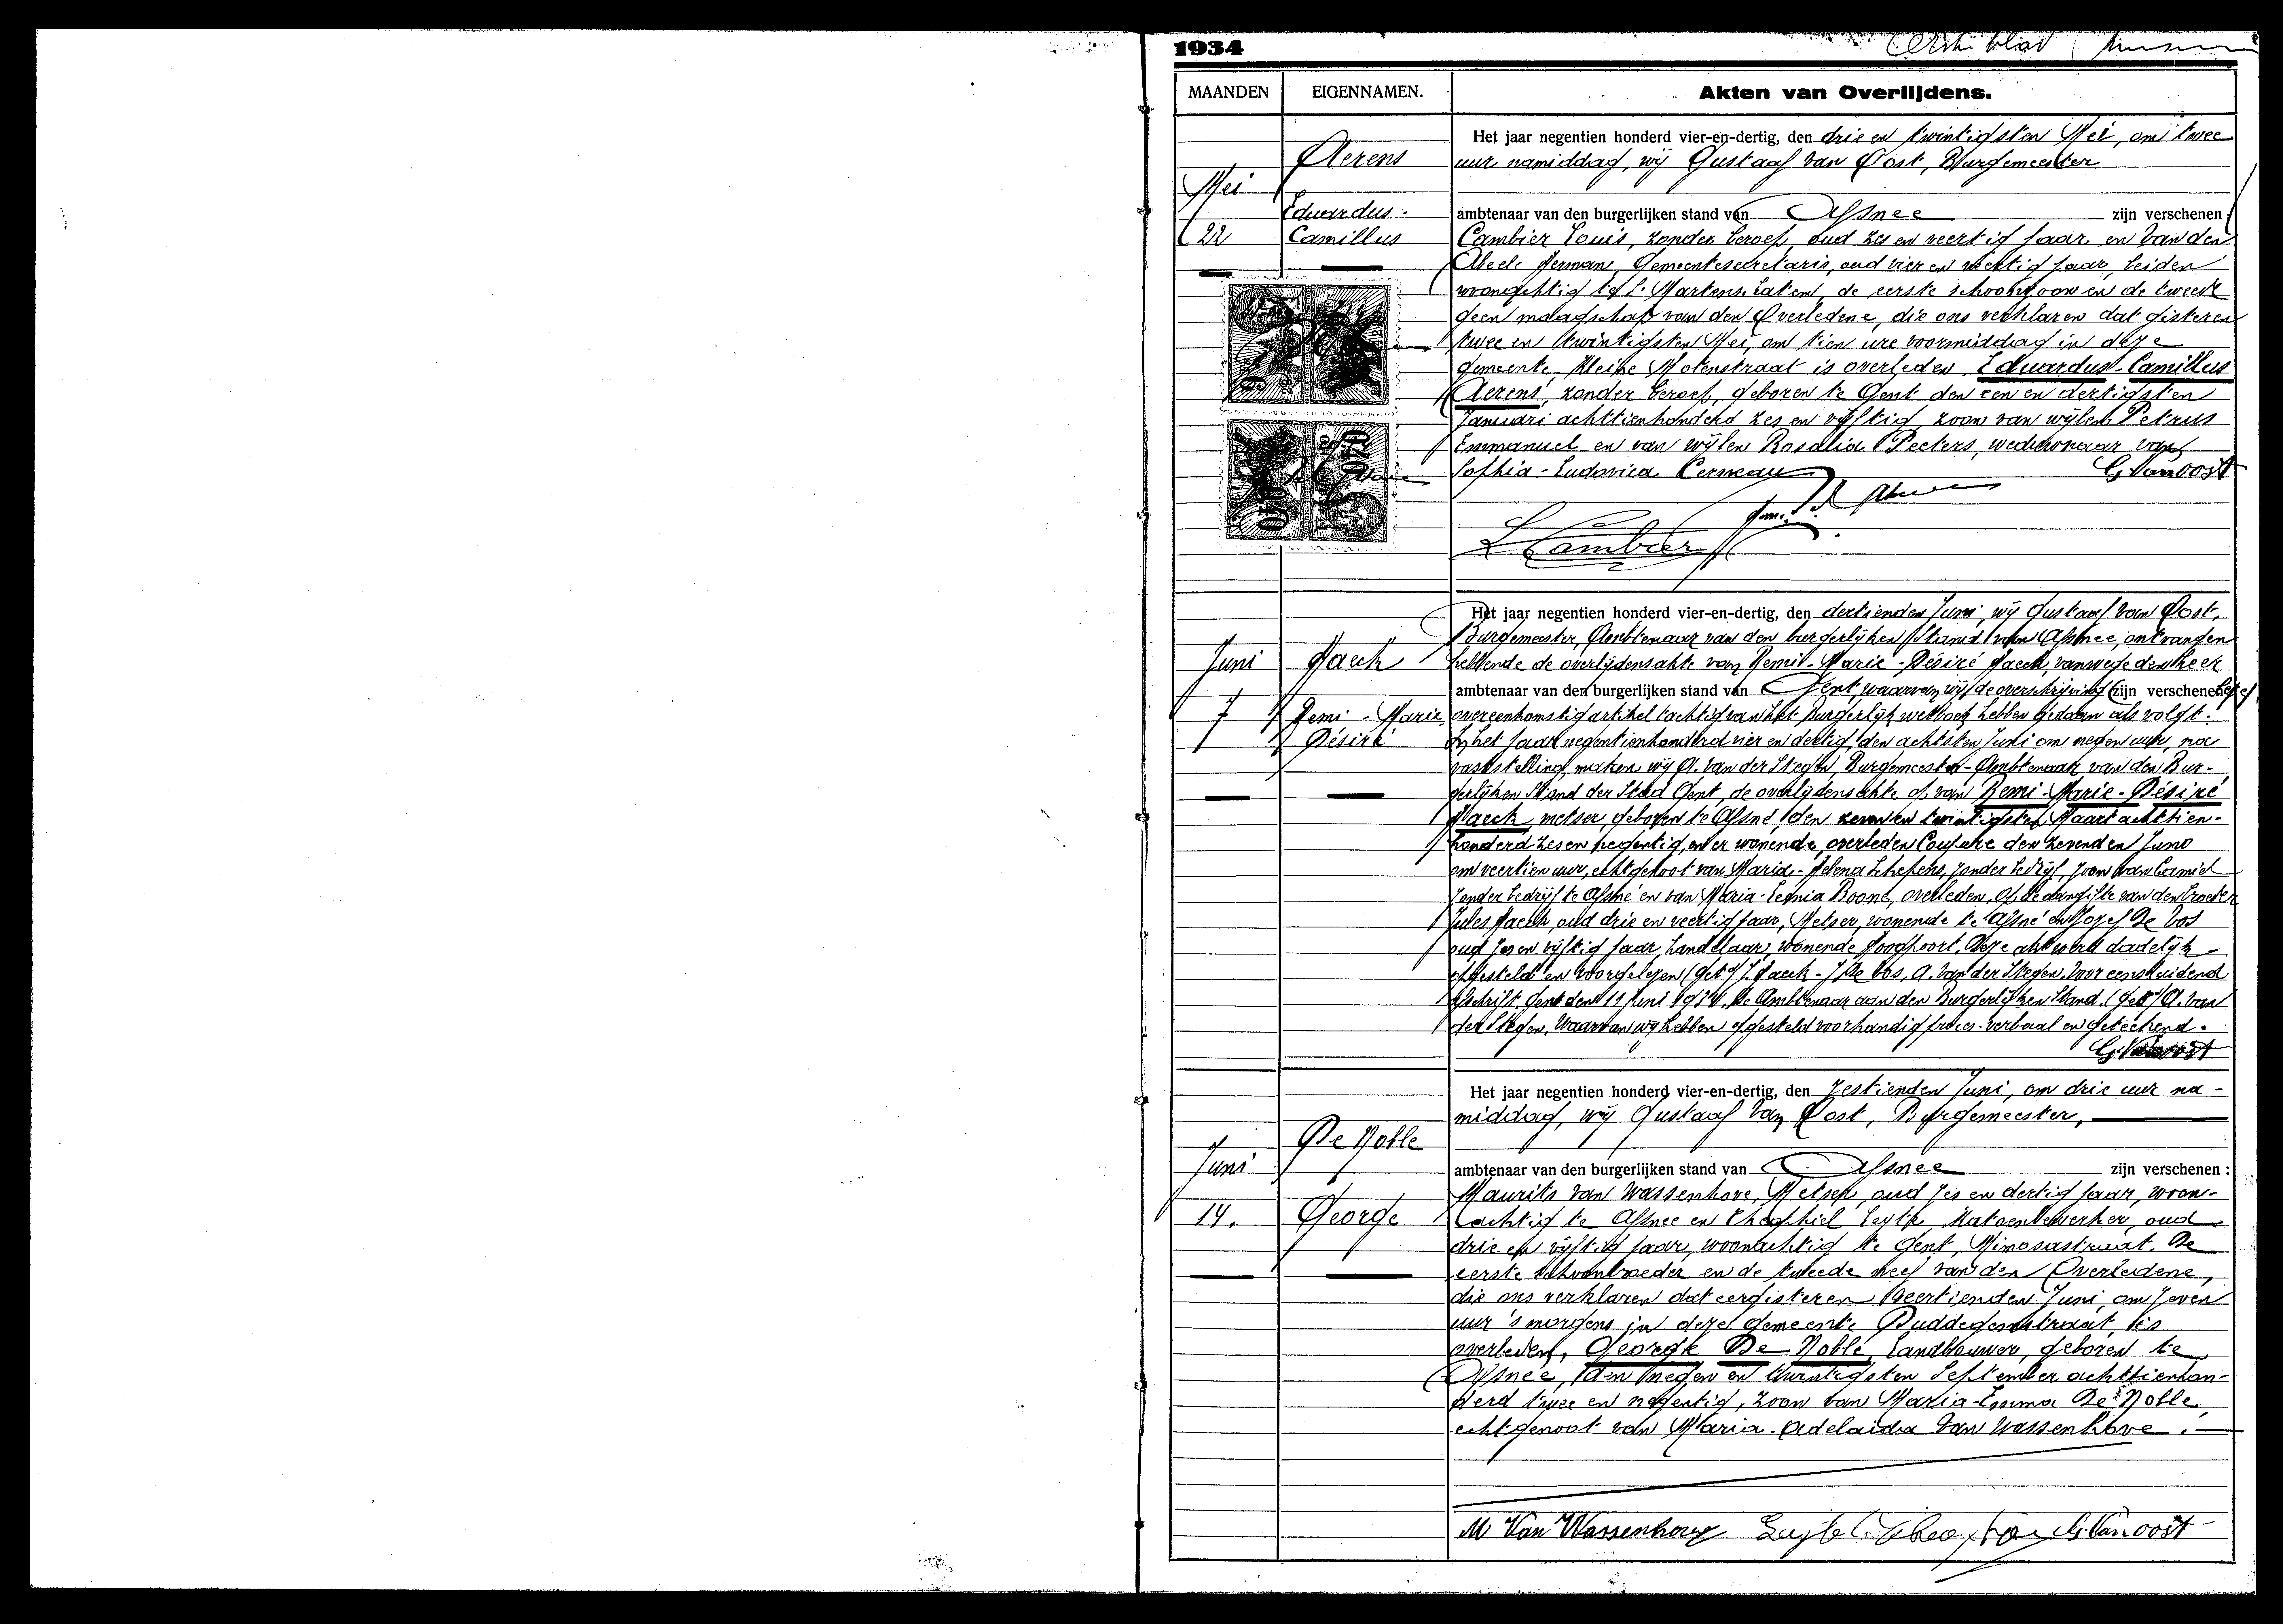 1934
MAANDEN EIGENNAMEN. Akten van Overlijdens.
Het jaar negentien honderd vier-en-dertig, den drie en twintigsten Mei, om twee
Aerens uur namiddag, wij Gustaaf Van Oost, Burgemeester
Mei
Eduardus- ambtenaar van den burgerlijken stand van Afsnee zijn verschenen :
22 Camillus Cambier Louis, zonder beroep, oud zes en veertig jaar en Van den
Abeele Herman, Gemeentesecretaris, oud vier en veertig jaar, beiden
woonachtig te St. Martens-Latem, de eerste schoonzoon en de tweede
geen maagschap van den Overledene, die ons verklaren dat gisteren
twee en twintigsten Mei, om tien ure voormiddag in deze
gemeente, Kleine Molenstraat is overleden Eduardus-Camillus
Aerens, zonder beroep, geboren te Gent den een en dertigsten
Januari achttienhonderd zes en vijftig, zoon van wijlen Petrus
Emmanuel en van wijlen Rosalia Peeters, weduwnaar van
Sophia-Ludovica Cerneau G. Van oost
L Cambier
Het jaar negentien honderd vier-en-dertig, den dertienden Juni, wij Gustaaf Van Oost,
Burgemeester, Ambtenaar van den burgerlijken Stand van Afsnee, ontvangen
Juni Haeck hebbende de overlijdensakte van Remi-Marie-Désiré Haeck, vanwege den heer
ambtenaar van den burgerlijken stand van Gent, waarvan wij de overschrijving zijn verschenen
7 Remi-Marie overeenkomstig artikel tachtig van het Burgerlijk wetboek hebben gedaan als volgt:
Désiré In het jaar negentienhonderd vier en dertig, den achtsten Juni om negen uur, na
vaststelling, maken wij A. Van der Stegen, Burgemeester-Ambtenaar van den Bur-
gerlijken Stand der Stad Gent, de overlijdensakte op van Remi-Marie-Désiré
Haeck, metser, geboren te Afsné, den zeven en twintigsten Maart achttien-
honderd zes en negentig, en er wonende, overleden Coupure den zevenden Juni
om veertien uur, echtgenoot van Maria-Helena Schepens, zonder bedrijf, zoon van Camiel
zonder bedrijf te Afsné en van Maria-Leonia Boone, overleden, op de aangifte van den broeder
Jules Haeck, oud drie en veertig jaar, Metser, wonende te Afsné en Jozef De Vos
oud zes en vijftig jaar, handelaar, wonende Hoogpoort. Deze akt werd dadelijk
opgesteld en voorgelezen (get.) J. Haeck - J. De Vos, A. Van der Stegen. Voor eensluidend
afschrift, Gent den 11 Juni 1934. De Ambtenaar van den Burgerlijken Stand. (get.) A. Van
der Stegen. Waarvan wij hebben opgesteld voorhandig proces-verbaal en geteekend.
G. Van oost
Het jaar negentien honderd vier-en-dertig, den zestienden Juni, om drie uur na-
middag, wij Gustaaf Van Oost, Burgemeester,
De Noble
Juni ambtenaar van den burgerlijken stand van Afsnee zijn verschenen :
Maurits Van Wassenhove, Metser, oud zes en dertig jaar, woon-
14. George achtig te Afsnee en Theophiel Leyte, Katoenbewerker, oud
drie en vijftig jaar, woonachtig te Gent, Mimosastraat. De
eerste schoonbroeder en de tweede neef van den Overledene,
die ons verklaren dat eergisteren veertienden Juni, om zeven
uur 's morgens in deze gemeente Buddegemstraat, is
overleden, George De Noble, Landbouwer, geboren te
Afsnee, den negen en twintigsten September achttienhon-
derd twee en negentig, zoon van Maria-Emma De Noble,
echtgenoot van Maria-Adelaidia Van Wassenhove.
M Van Wassenhove G. Van oost